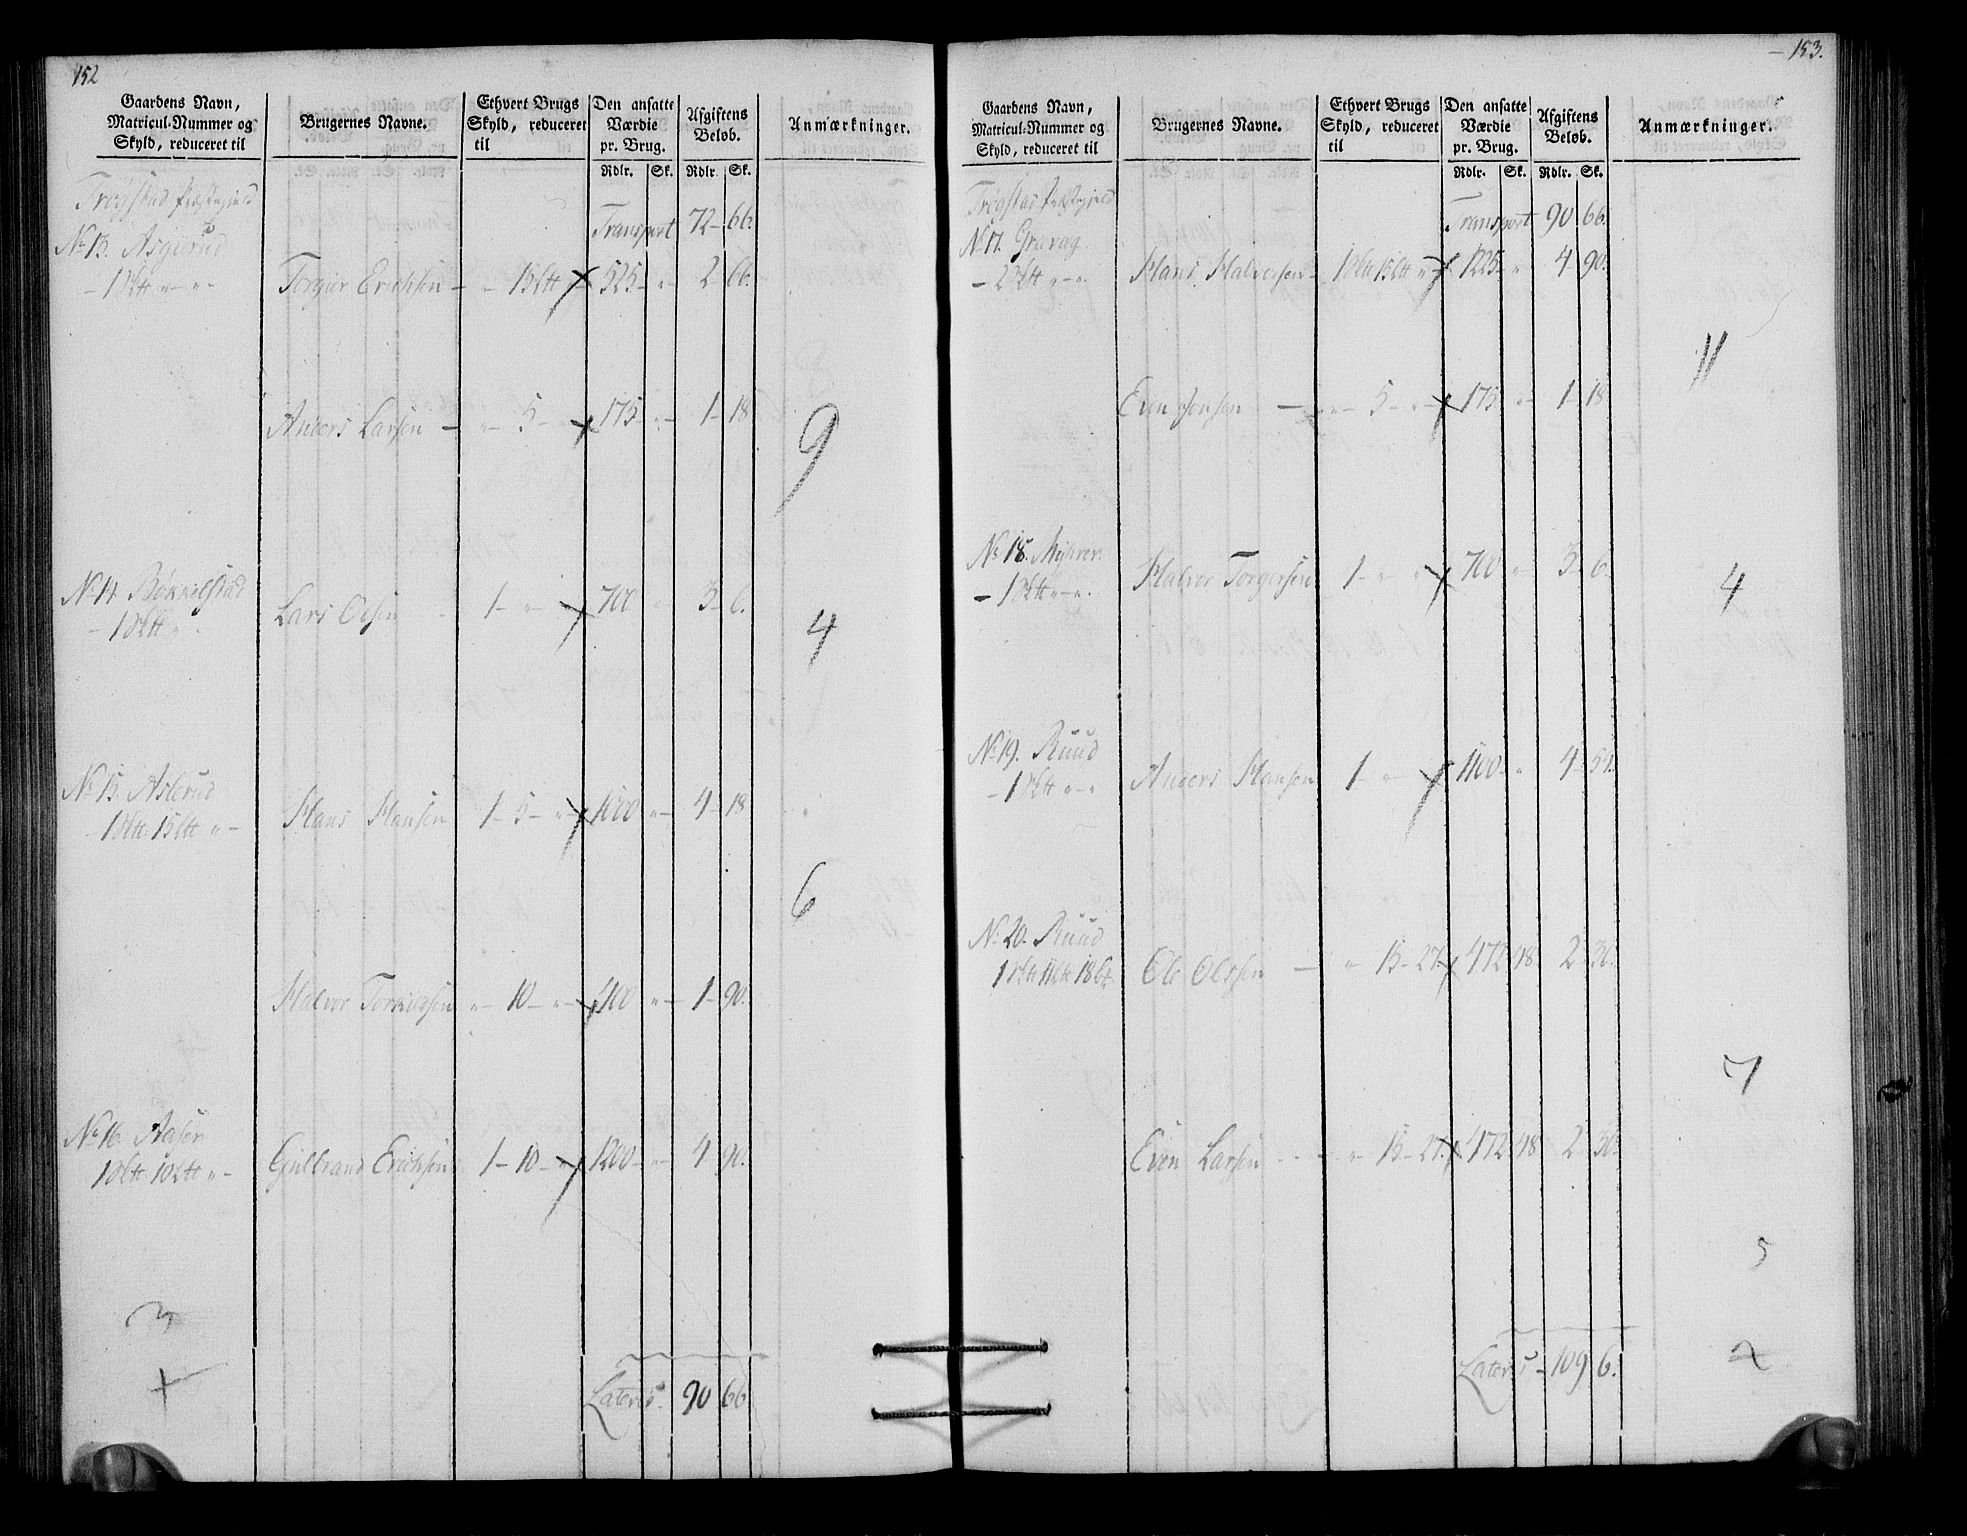 152
Gaardens Navn, Matricul-Nummer og Skyld, reduceret til
Brugernes Navne.
Ethvert Brugs Skyld, reduceret til
Den ansatte Værdie pr. Brug.
Afgiftens Beløb.
Anmærkninger.
Rdlr. Sk. Rdlr. Sk.
Trøgstad Præstegield
Transport 72 – 66.
No 13. Asgerud
– 1 Sk℔ " – " – Torgier Erichsen – " – 15 L℔ " 525 – " – 2 – 66.
Anders Larsen – " – 5 – " – 175 – " – 1 – 18
9
No 14.
– 1 Sk℔ " Lars Olsen 1 – " – 700 – " – 3 – 6.
4
No 15. Aslerud
– 1 Sk℔ 15 L℔ " – Hans Hansen 1 – 5 – " – 1000 – " – 4 – 18
6
Halvor " – 10 – " – 400 – " – 1 – 90.
No 16. Aasen
1 Sk℔ 10 L℔ " – Gulbrand Erichsen 1 – 10 – " 1200 – " – 4 – 90.
3
+
Lateris 90 66
153.
Gaardens Navn, Matricul-Nummer og Skyld, reduceret til
Brugernes Navne.
Ethvert Brugs Skyld, reduceret til
Den ansatte Værdie pr. Brug.
Afgiftens Beløb.
Anmærkninger.
Rdlr. Sk. Rdlr. Sk.
Trøgstad Præstegield
Transport 90 66.
No 17. Gravag
– 2 Sk℔ " – " Hans Halvorsen – 1 Sk℔ 15 L℔ " 1225 – " 4 90.
11
Even Jensen – " – 5 – " – 175 – " – 1 – 18
No 18. Myhrer
– 1 Sk℔ " – ". Halvor Torgersen 1 – " – " 700 " 3 – 6.
4
No 19. Ruud
– 1 Sk℔ " – " Anders Hansen 1 – " – 1100 – " 4 – 54.
No 20. Ruud
1 Sk℔ 11 L℔ 18 Ole Olssen – " 15 – 27. 472 48 2 – 36.
7
Even Larsen – " 15 – 27. 472 48 2 – 36.
5
Lateris – 109 6.